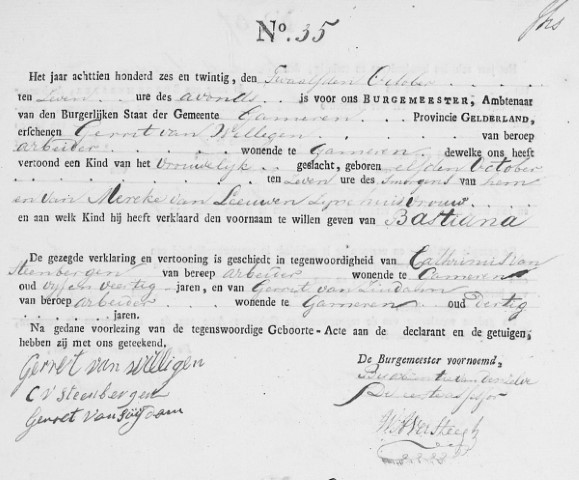 N.º 35
Het jaar achttien honderd zes en twintig, den Twaalfden October
ten Zeven ure des avonds is voor ons BURGEMEESTER, Ambtenaar
van den Burgerlijken Staat der Gemeente Gameren Provincie GELDERLAND,
erschenen Gerret van Willigen van beroep
arbeider wonende te Gameren dewelke ons heeft
vertoond een Kind van het Vrouwelyk geslacht, geboren elfden October
ten Zeven ure des Smorgens van hem
en van Mereke van Leeuwen Zyne huisvrouw
en aan welk Kind hij heeft verklaard den voornaam te willen geven van Bastiana
De gezegde verklaring en vertooning is geschiedt in tegenwoordigheid van Cathrinus van
Steenbergen van beroep arbeider wonende te Gameren
oud vyf en veertig jaren, en van Gerret van
van beroep arbeider wonende te Gameren oud Dertig
jaren.
Na gedane voorlezing van de tegenswoordige Geboorte-Acte aan de declarant en de getuigen,
hebben zij met ons geteekend.
Gerret van Willigen
C V Steenbergen
Gerret van
De Burgemeester voornoemd,